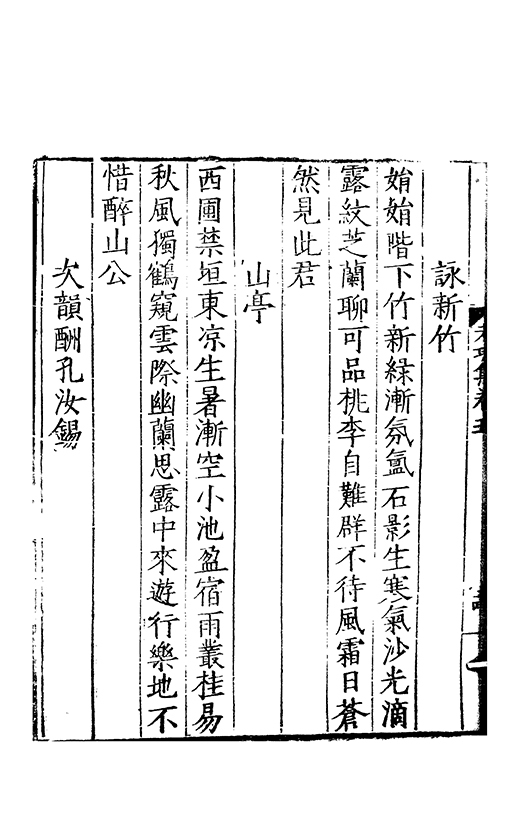 詠新竹
娋娋階下竹新綠漸氛氳石影生寒氣沙光滴
露紋芝蘭聊可品桃李自難群不待風霜日蒼
然見此君
山亭
西圃禁垣東凉生暑漸空小池盈宿雨叢桂易
秋風獨鶴窺雲際幽蘭思露中來遊行樂地不
惜醉山公
次韻酬孔汝錫